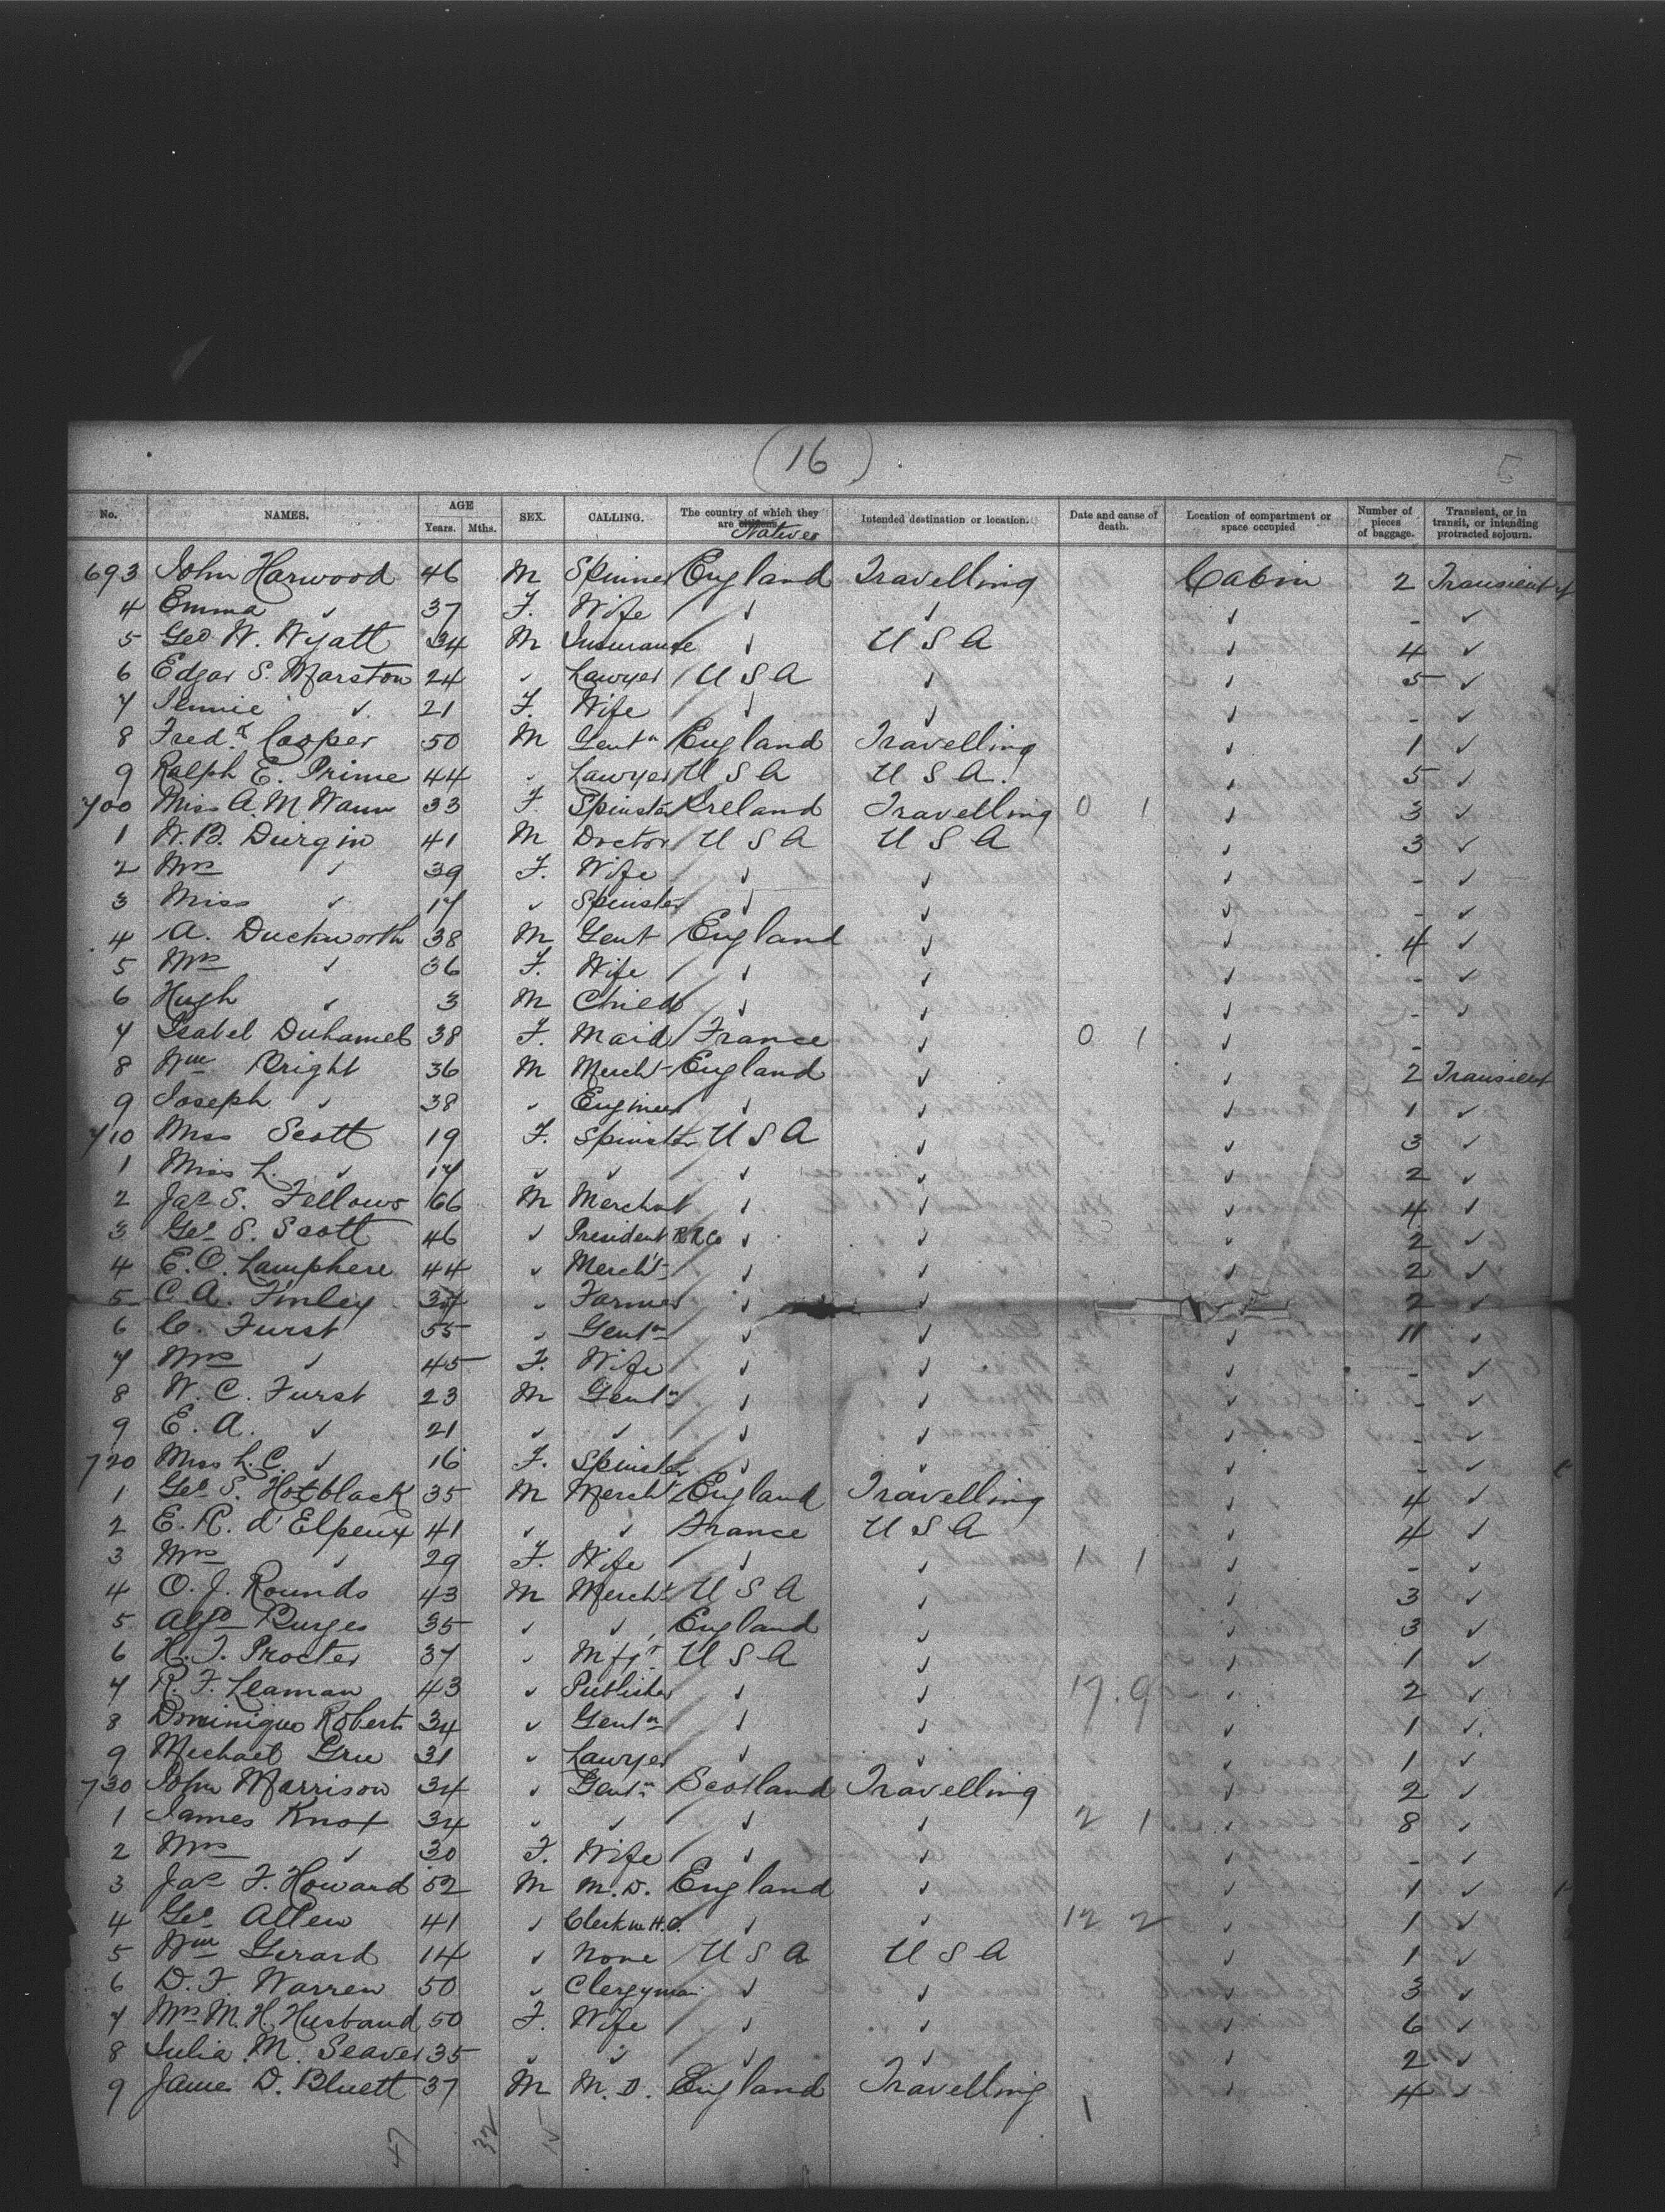 (16)
No. NAMES. AGE Years. Mths. SEX. CALLING. The country of which they are citizens. Natives Intended destination or location. Date and cause of death. Location of compartment or space occupied Number of pieces of baggage. Transient, or in transit, or intending protracted sojourn.
693 John Harwood 46 M Spinner England Travelling Cabin 2 Transient
4 Emma ✓ 37 F. Wife ✓ ✓ ✓ - ✓
5 Geo W. Wyatt 34 M Insurance ✓ U S A ✓ 4 ✓
6 Edgar S. Marston 24 ✓ Lawyer U S A ✓ ✓ 5 ✓
7 Jennie ✓ 21 F. Wife ✓ ✓ ✓ - ✓
8 Fredk Cooper 50 M Gentn England Travelling ✓ 1 ✓
9 Ralph E. Prime 44 ✓ Lawyer U S A U S A. ✓ 5 ✓
700 Miss A. M Wann 33 F Spinster Ireland Travelling 0 1 ✓ 3 ✓
1 W. B. Durgin 41 M Doctor U S A U S A ✓ 3 ✓
2 Mrs ✓ 39 F. Wife ✓ ✓ ✓ - ✓
3 Miss ✓ 17 ✓ Spinster ✓ ✓ ✓ - ✓
4 A. Duckworth 38 M Gent England ✓ ✓ 4 ✓
5 Mrs ✓ 36 F. Wife ✓ ✓ ✓ - ✓
6 Hugh ✓ 3 M Child ✓ ✓ ✓ - ✓
7 Isabel Duhamel 38 F. Maid France ✓ 0 1 ✓ -
8 Wm Bright 36 M Mercht England ✓ ✓ 2 Transient
9 Joseph ✓ 38 ✓ Engineer ✓ ✓ ✓ 1 ✓
710 Miss Scott 19 F. Spinster U S A ✓ ✓ 3 ✓
1 Miss L. ✓ 17 ✓ ✓ ✓ ✓ ✓ 2 ✓
2 Jas S. Fellows 66 M Merchant ✓ ✓ ✓ 4 ✓
3 Geo S. Scott 46 ✓ President R R Co ✓ ✓ ✓ 2 ✓
4 E. O. Lamphere 44 ✓ Mercht ✓ ✓ ✓ 2 ✓
5 C. A. Finley 37 ✓ Farmer ✓ ✓ ✓ 2 ✓
6 C. Furst 55 ✓ Gentn ✓ ✓ ✓ 11 ✓
7 Mrs ✓ 45 F. Wife ✓ ✓ ✓ - ✓
8 W. C. Furst 23 M Gentn ✓ ✓ ✓ - ✓
9 E. A. ✓ 21 ✓ ✓ ✓ ✓ ✓ - ✓
720 Miss L. C. ✓ 16 F. Spinster ✓ ✓ ✓ - ✓
1 Geo S. Hotblack 35 M Mercht England Travelling ✓ 4 ✓
2 E. R. d'Elpeux 41 ✓ ✓ France U S A ✓ 4 ✓
3 Mrs ✓ 29 F. Wife ✓ ✓ 1 1 ✓ - ✓
4 O. J. Rounds 43 M Mercht U S A ✓ ✓ 3 ✓
5 Alfd Burges 35 ✓ ✓ England ✓ ✓ 3 ✓
6 H. T. Procter 37 ✓ Mfgr U S A ✓ ✓ 1 ✓
7 R. F. Leaman 43 ✓ Publisher ✓ ✓ 17. 9 ✓ 2 ✓
8 Dominique Robert 34 ✓ Gentn ✓ ✓ ✓ 1 ✓
9 Michael Gru 31 ✓ Lawyer ✓ ✓ ✓ 1 ✓
730 John Morrison 34 ✓ Gentn Scotland Travelling ✓ 2 ✓
1 James Knox 34 ✓ ✓ ✓ ✓ 2 1 ✓ 8 ✓
2 Mrs ✓ 30 F. Wife ✓ ✓ ✓ - ✓
3 Jas F. Howard 52 M M.D. England ✓ ✓ 1 ✓
4 Geo Allen 41 ✓ Clerk in H.O. ✓ ✓ 12 2 ✓ 1 ✓
5 Wm Gerard 14 ✓ None U S A U S A ✓ 1 ✓
6 D. F. Warren 50 ✓ Clergyman ✓ ✓ ✓ 3 ✓
7 Mrs M. H. Husband 50 F. Wife ✓ ✓ ✓ 6 ✓
8 Julia M. Seaver 35 ✓ ✓ ✓ ✓ ✓ 2 ✓
9 James D. Bluett 37 M M.D. England Travelling ✓ 4 ✓
47 32 15 1